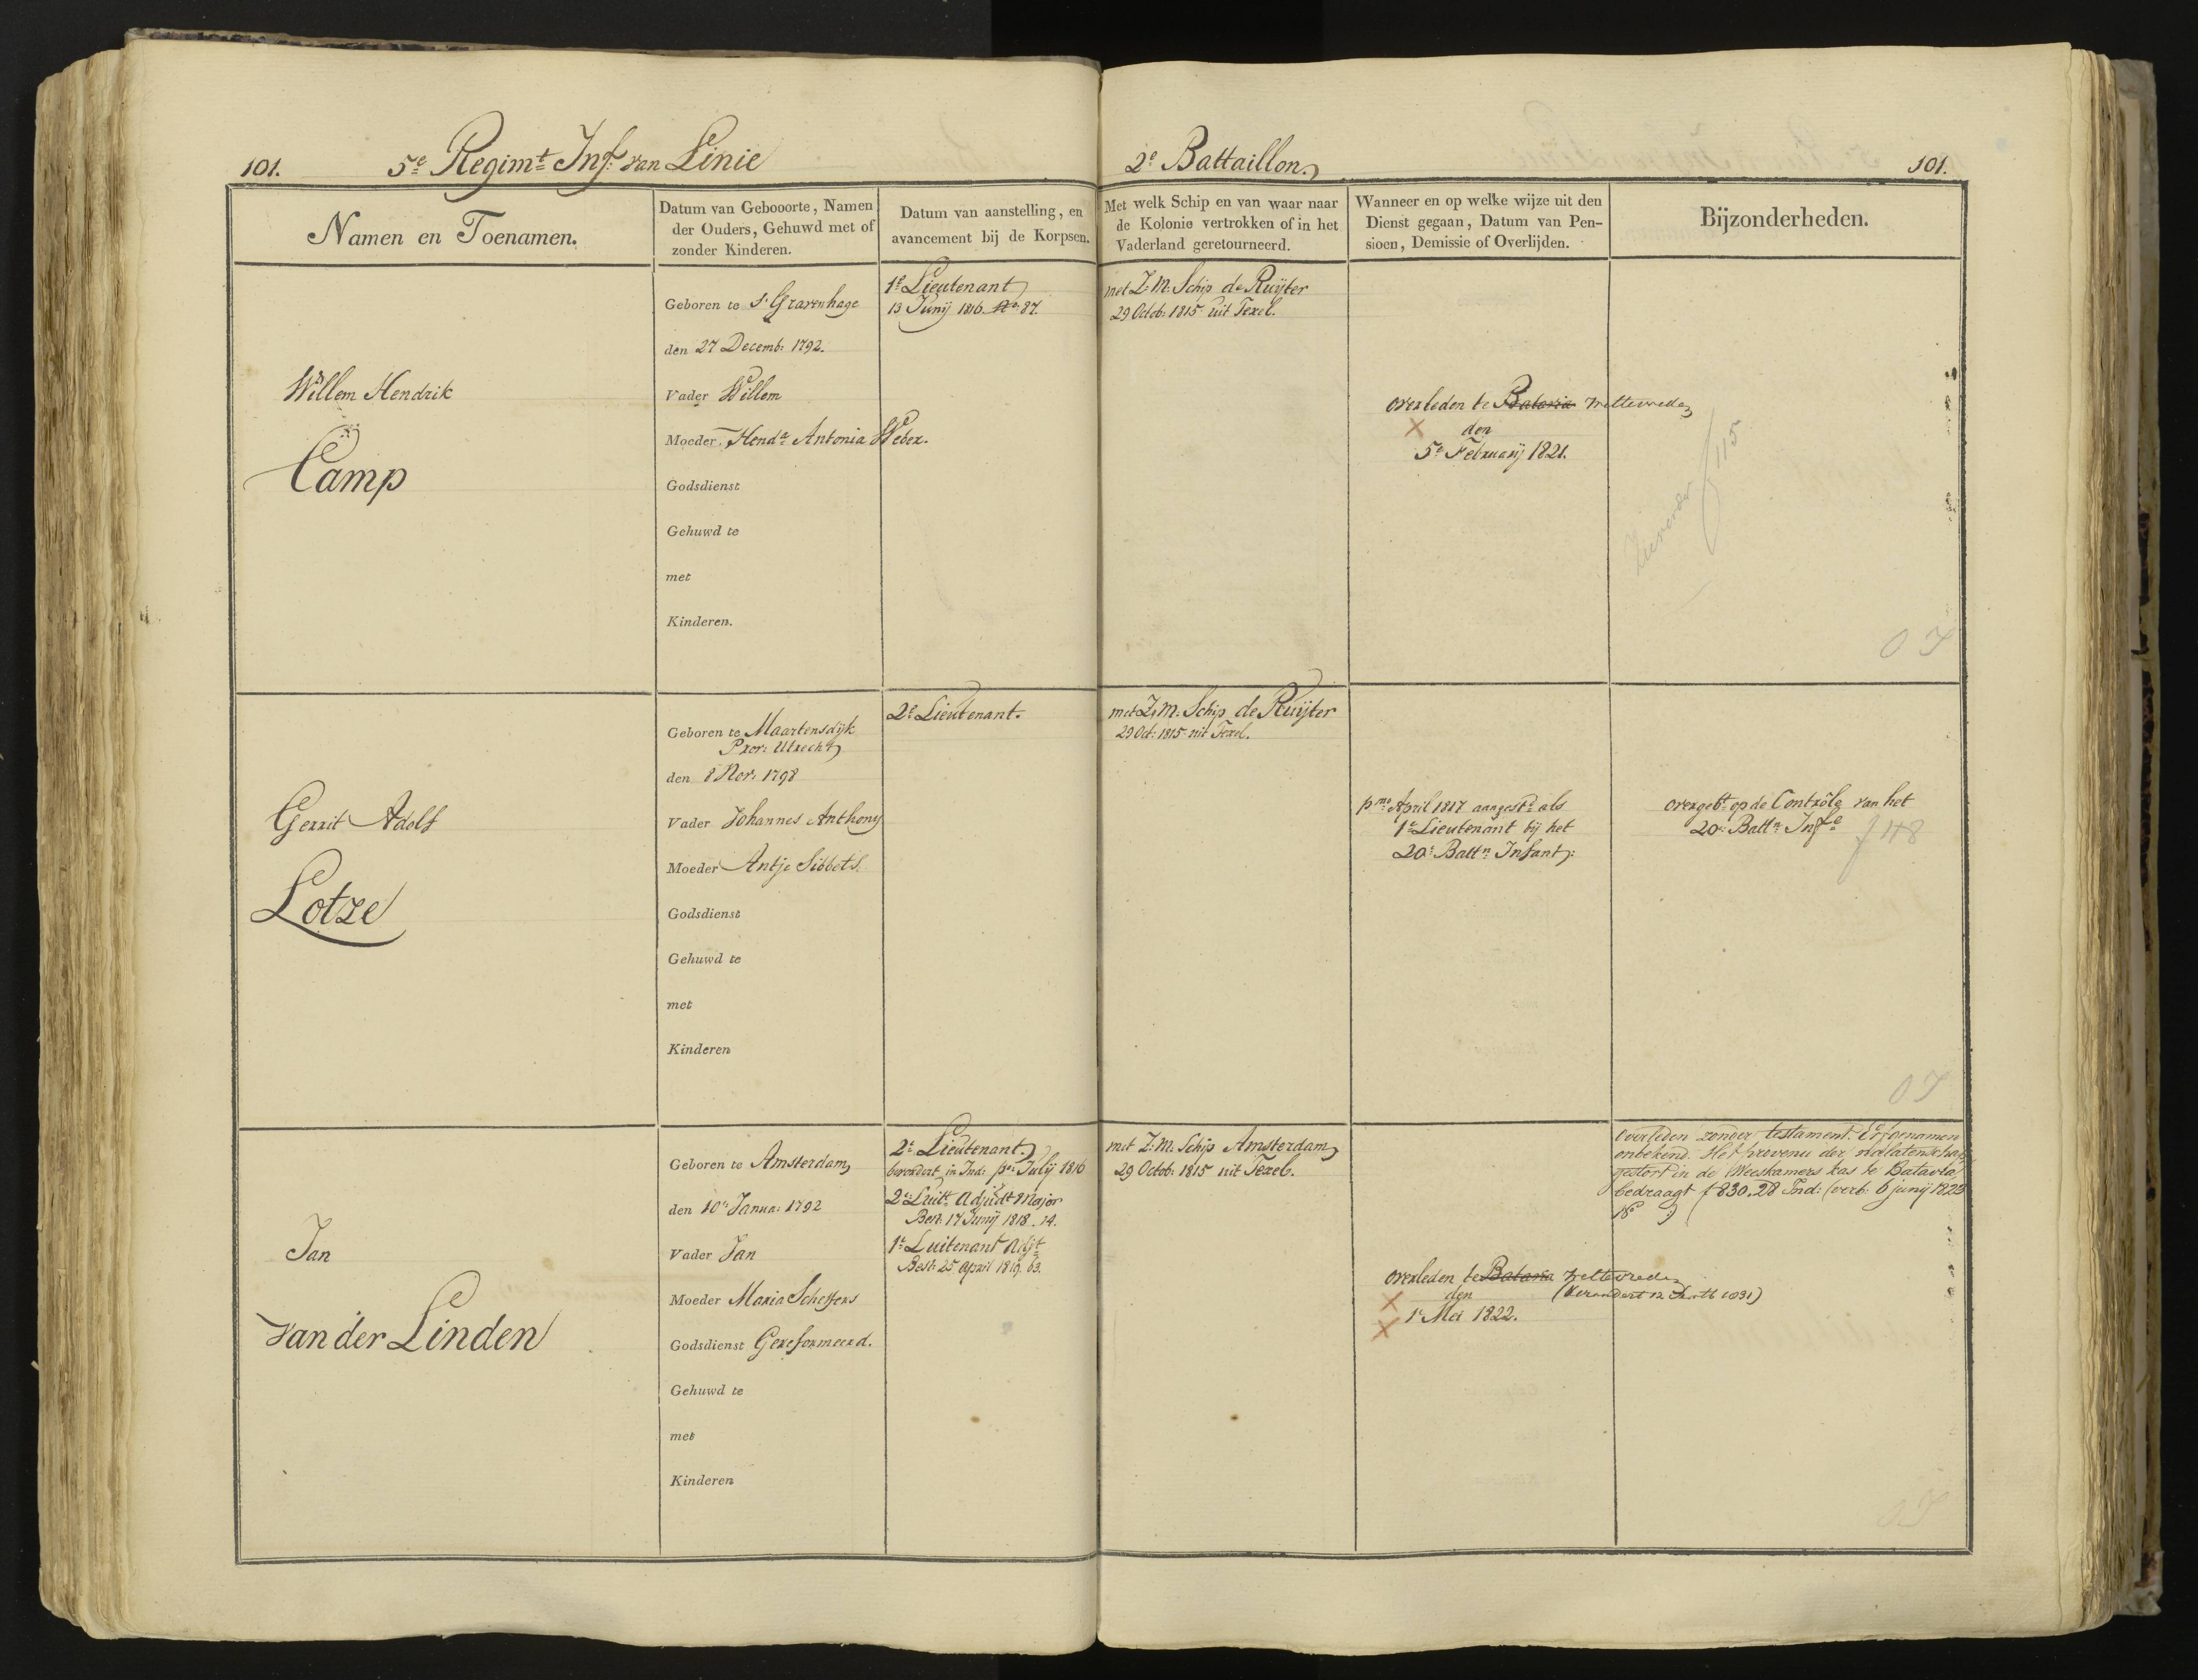 101.
5e Regimt Inf: van Linie
2e Battaillon.
101.
Namen en Toenamen.
Datum van Gebooorte, Namen
der Ouders, Gehuwd met of
zonder Kinderen.
Datum van aanstelling, en
avancement bij de Korpsen.
Met welk Schip en van waar naar
de Kolonie vertrokken of in het
Vaderland geretourneerd.
Wanneer en op welke wijze uit den
Dienst gegaan, Datum van Pen-
sioen, Demissie of Overlijden.
Bijzonderheden.
Willem Hendrik
Camp
Geboren te s'Gravenhage
den 27 Decemb: 1792.
Vader Willem
Moeder Henda Antonia Weber.
Godsdienst
Gehuwd te
met
Kinderen.
1e Lieutenant
13 Junij 1816 No: 87.
met Z: M: Schip de Ruijter
29 Octob: 1815 uit Texel.
overleden te Batavia Weltevreden
den
5e Februarij 1821.
f 115
O I
Gerrit Adolf
Lotze
Geboren te Maartensdijk
Prov: Utrecht
den 8 Nov: 1798
Vader Johannes Anthony
Moeder Antje Sibbets.
Godsdienst
Gehuwd te
met
Kinderen
2e Lieutenant.
met Z: M: Schip de Ruijter
29 Oct: 1815 uit Texel.
pmo April 1817 aangestd als
1e Lieutenant bij het
20e Battn Infant:
overgebt op de Contrôle van het
20e Battn Infe f 48
O I
Jan
van der Linden
Geboren te Amsterdam
den 10n Janua: 1792
Vader Jan
Moeder Maria Scheffers
Godsdienst Gereformeerd.
Gehuwd te
met
Kinderen
2e Lieutenant
bevordert in Ind: po Julij 1816
2e Luitt Adjudt Major
Besl: 17 Junij 1818. 14.
1e Luitenant Adjt
Besl: 25 April 1819. 63.
met Z: M: Schip Amsterdam
29 Octob: 1815 uit Texel.
overleden te Batavia Weltevreden
den (Verandert
1e Mei 1822.
Overleden zonder testament. Erfgenamen
onbekend. Het provenu der nalatenschap
gestort in de Weeskamers kas te Batavia
bedraagt f 830.28 Ind: (verb: 6 junij 1823
No )
O I